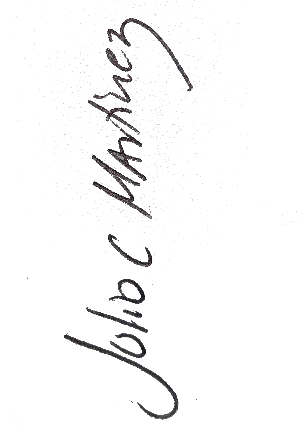 Julio C Martinez